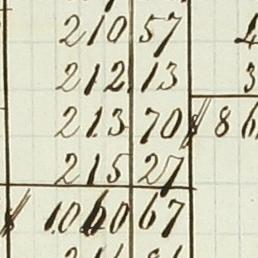 210 57 4
212 13 3
213 70 $ 86
215 27
$ 1060 67